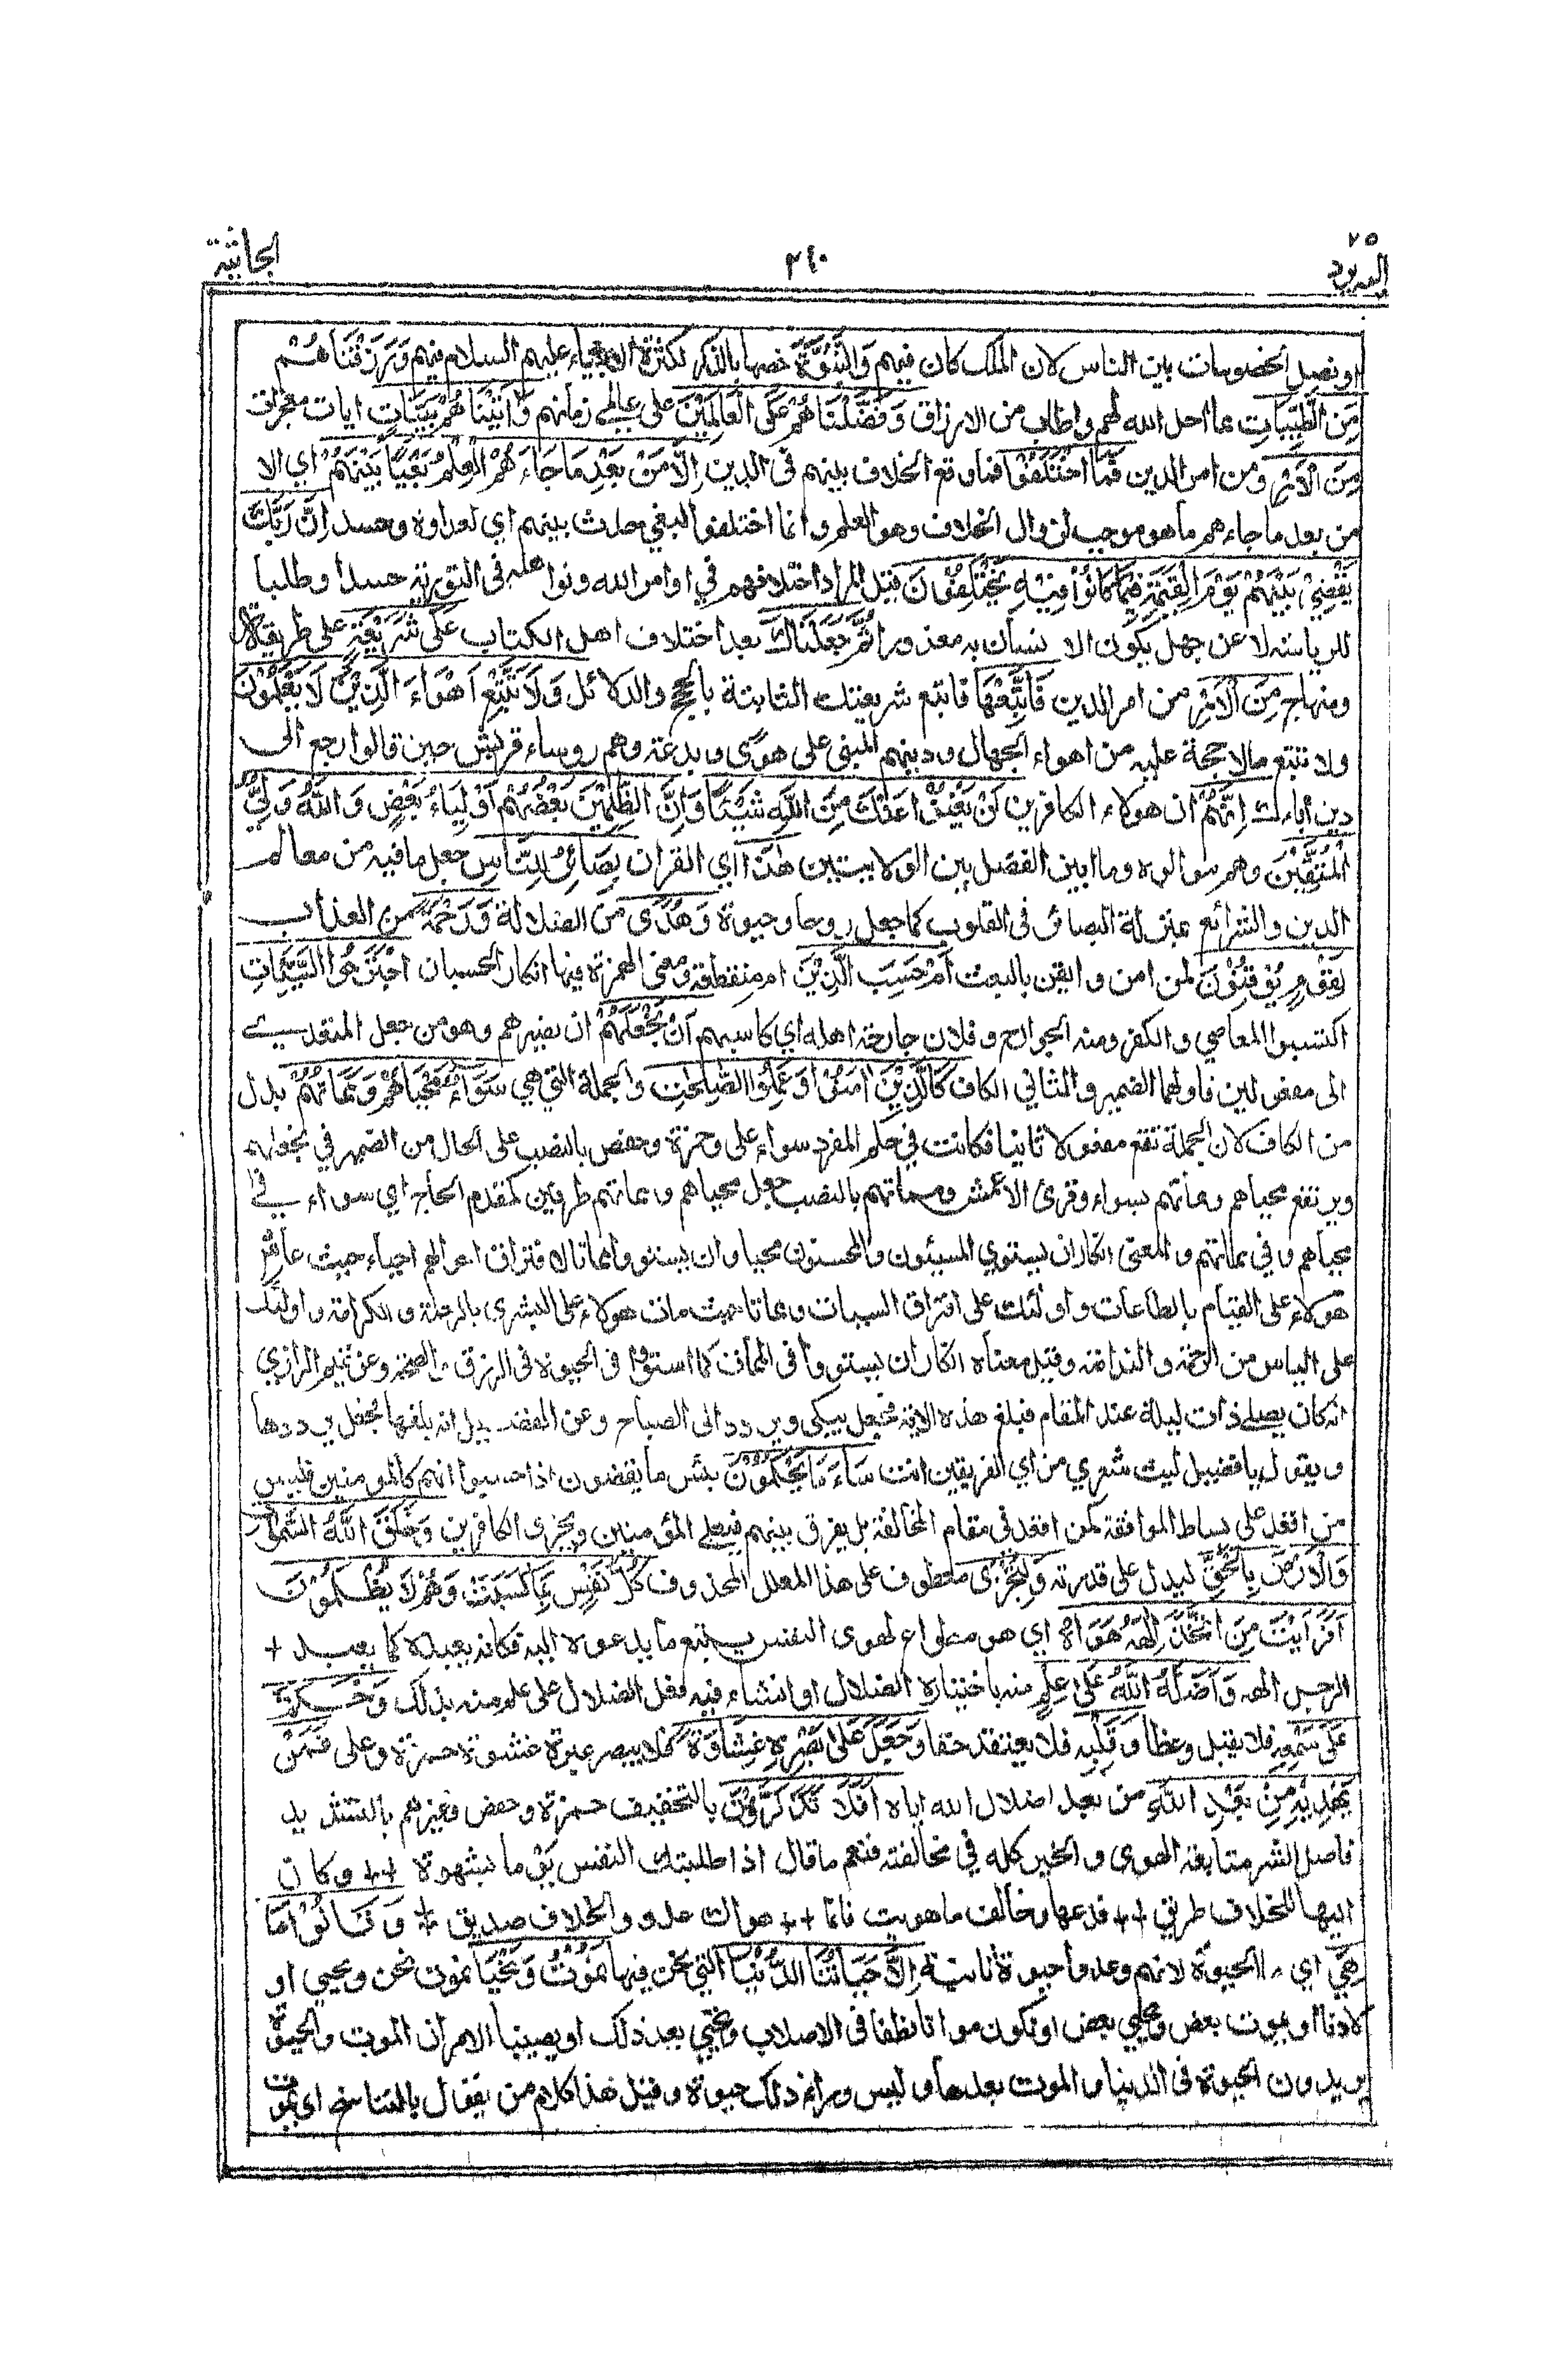 ٢٥
اليه يرد
٣٤٠
الجاثية
او فصل الخصومات بين الناس لان الملك كان فيهم وَالنُّبُوَّةَ خصها بالذكر لكثرة الانبياء عليهم السلام فيهم وَرَزَقْنَاهُمْ
مِنَ الطَّيِّبَاتِ مما احل الله لهم واطاب من الارزاق وَفَضَّلْنَاهُمْ عَلَى الْعَالَمِيْنَ على عالمي زمانهم وَاٰتَيْنَاهُمْ بَيِّنَاتٍ ايات معجزات
مِنَ الْاَمْرِ ومن امر الدين فَمَا اخْتَلَفُوْا فما وقع الخلاف بينهم فى الدين اِلَّا مِنْ بَعْدِ مَا جَاءَهُمُ الْعِلْمُ بَغْيًا بَيْنَهُمْ اي الا
من بعد ما جاءهم ما هو موجب لزوال الخلاف وهو العلم وانما اختلفوا لبغي حدث بينهم اي لعداوة وحسد اِنَّ رَبَّكَ
يَقْضِيْ بَيْنَهُمْ يَوْمَ الْقِيٰمَةِ فِيْمَا كَانُوْا فِيْهِ يَخْتَلِفُوْنَ قيل المراد اختلافهم في اوامر الله ونواهيه فى التورية حسدا وطلبا
للرياسة لا عن جهل يكون الانسان به معذورا ثُمَّ جَعَلْنَاكَ بعد اختلاف اهل الكتاب عَلٰى شَرِيْعَةٍ على طريقة
ومنهاج مِنَ الْاَمْرِ من امر الدين فَاتَّبِعْهَا فاتبع شريعتك الثابتة بالحجج والدلائل وَلَا تَتَّبِعْ اَهْوَاءَ الَّذِيْنَ لَا يَعْلَمُوْنَ
ولا تتبع مالا حجة عليه من اهواء الجهال ودينهم المبني على هوى وبدعة وهم روساء قريش حين قالوا ارجع الى
دين اباءك اِنَّهُمْ ان هؤلاء الكافرين لَنْ يُغْنُوْا عَنْكَ مِنَ اللّٰهِ شَيْئًا وَاِنَّ الظّٰلِمِيْنَ بَعْضُهُمْ اَوْلِيَاءُ بَعْضٍ وَاللّٰهُ وَلِيُّ
الْمُتَّقِيْنَ وهم موالوه وما ابين الفصل بين الولايتين هٰذَا اي القران بَصَائِرُ لِلنَّاسِ جعل ما فيه من معالم
الدين والشرائع بمنزلة البصائر فى القلوب كما جعل روحا وحيوة وَهُدًى من الضلالة وَرَحْمَةٌ من العذاب
لِقَوْمٍ يُوْقِنُوْنَ لمن امن وايقن بالبعث اَمْ حَسِبَ الَّذِيْنَ ام منقطعة ومعنى الهمزة فيها انكار الحسبان اجْتَرَحُوا السَّيِّئَاتِ
اكتسبوا المعاصي والكفر ومنه الجوارح وفلان جارحة اهله اي كاسبهم اَنْ نَجْعَلَهُمْ ان نصيرهم وهو من جعل المتعدي
الى مفعولين فاولهما الضمير والثاني الكاف كَالَّذِيْنَ اٰمَنُوْا وَعَمِلُوا الصّٰلِحٰتِ والجملة التي هي سَوَاءً مَحْيَاهُمْ وَمَمَاتُهُمْ بدل
من الكاف لان الجملة تقع مفعولا ثانيا فكانت في حكم المفرد سواء على وحمزة وحفص بالنصب على الحال من الضمير في نجعلهم
ويرتفع محياهم ومماتهم بسواء وقرئ الاعمش ومماتهم بالنصب جعل محياهم ومماتهم ظرفين كمقدم الحاج اي سواء في
محياهم وفي مماتهم والمعنى انكار ان يستوي المسيئون والمحسنون محيا وان يستووا مماتا لافتراق احوالهم احياء حيث عاش
هؤلاء على القيام بالطاعات واولئك على اقتراف السيئات ومماتا حيث مات هؤلاء على البشرى بالرحمة والكرامة واولئك
على الياس من الرحمة والندامة وقيل معناه انكار ان يستووا فى الممات كما استووا فى الحيوة فى الرزق والصحة وعن تميم الداري
انه كان يصلي ذات ليلة عند المقام فبلغ هذه الاية فجعل يبكى ويردد الى الصباح وعن الفضيل انه بلغها فجعل يرددها
ويقول يا فضيل ليت شعري من اي الفريقين انت سَاءَ مَا يَحْكُمُوْنَ بئس ما يقضون اذا حسبوا انهم كالمؤمنين فليس
من اقعد على بساط الموافقة كمن اقعد في مقام المخالفة بل يفرق بينهم فيعلي المؤمنين ويخزي الكافرين وَخَلَقَ اللّٰهُ السَّمٰوٰتِ
وَالْاَرْضَ بِالْحَقِّ ليدل على قدرته وَلِتُجْزٰى معطوف على هذا المعلل المحذوف كُلُّ نَفْسٍ بِمَا كَسَبَتْ وَهُمْ لَا يُظْلَمُوْنَ
اَفَرَاَيْتَ مَنِ اتَّخَذَ اِلٰهَهُ هَوَاهُ اي هو مطواع لهوى النفس يتبع ما يدعوه اليه فكانه يعبده كما يعبد +
الرجل الهه وَاَضَلَّهُ اللّٰهُ عَلٰى عِلْمٍ منه باختياره الضلال او انشاء فيه فعل الضلال على علم منه بذلك وَخَتَمَ
عَلٰى سَمْعِهِ فلا يقبل وعظا وَقَلْبِهِ فلا يعتقد حقا وَجَعَلَ عَلٰى بَصَرِهِ غِشَاوَةً فلا يبصر عبرة غشوة حمزة وعلى فَمَنْ
يَهْدِيْهِ مِنْ بَعْدِ اللّٰهِ من بعد اضلال الله اياه اَفَلَا تَذَكَّرُوْنَ بالتخفيف حمزة وحفص وغيرهم بالتشديد
فاصل الشر متابعة الهوى والخير كله في مخالفته فنعم ما قال اذا طلبتك النفس يوما بشهوة ++ وكان
اليها للخلاف طريق ++ فدعها وخالف ما هويت فانما ++ هواك عدو والخلاف صديق + وَقَالُوْا مَا
هِيَ اي الحيوة لانهم وعدوا حيوة ثانية اِلَّا حَيَاتُنَا الدُّنْيَا التي نحن فيها نَمُوْتُ وَنَحْيَا نموت نحن ويحيى او
لادنا او يموت بعض ويحيي بعض او نكون مواتا نطفا فى الاصلاب ونحيي بعد ذلك او يصيبنا الامران الموت والحيوة
يريدون الحيوة فى الدنيا والموت بعدها وليس وراء ذلك حيوة وقيل هذا كلام من يقول بالتناسخ اي يموت